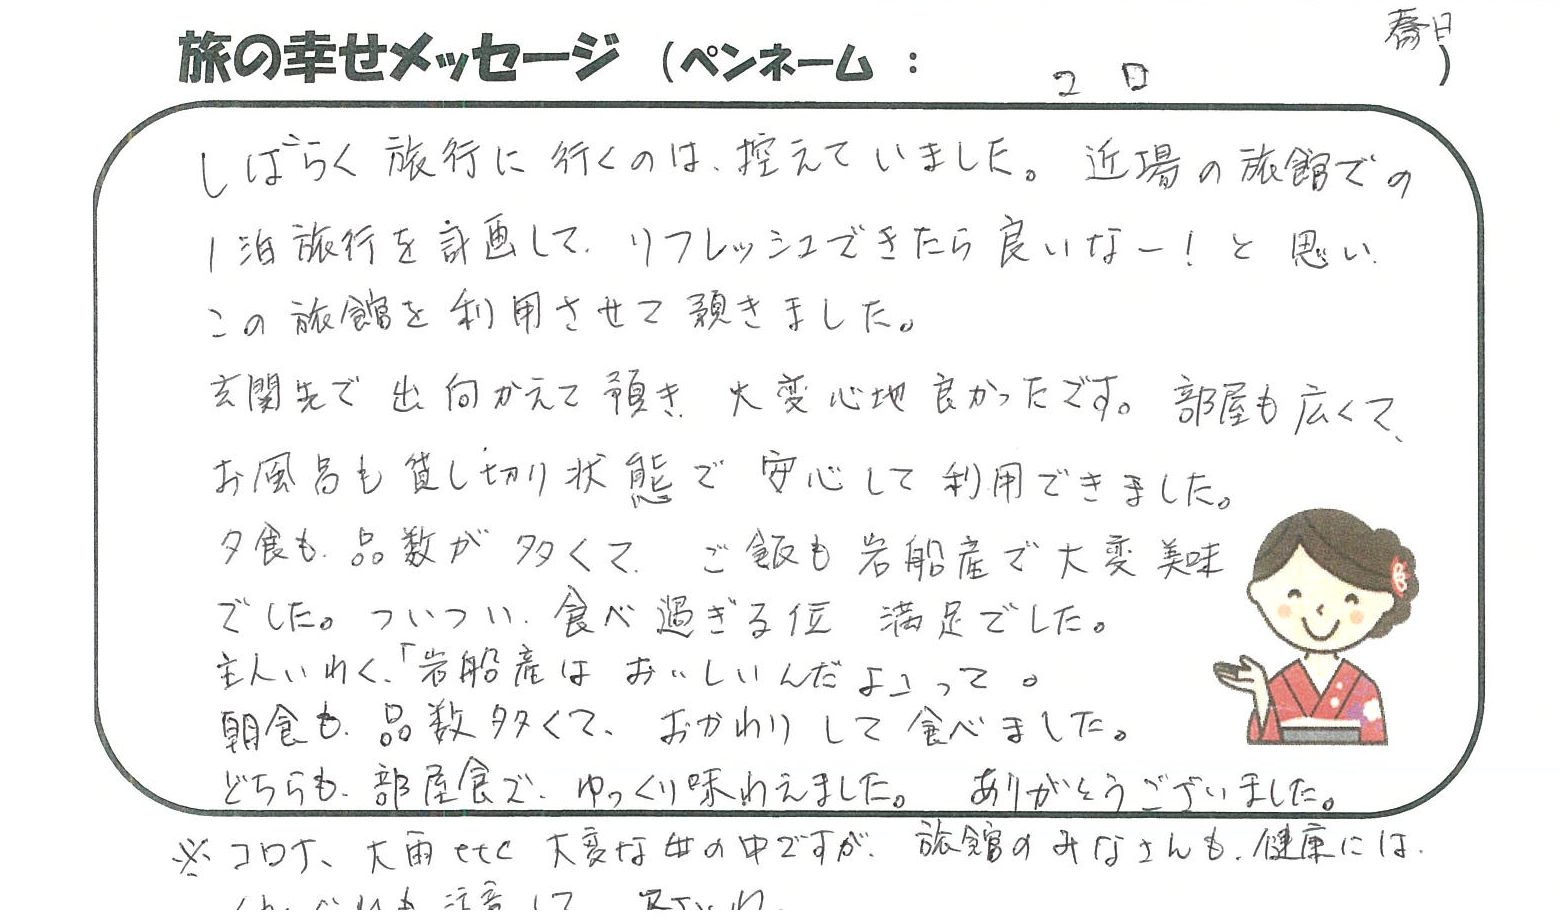 旅の幸せメッセージ (ペンネーム : コロ )
しばらく旅行に行くのは、控えていました。近場の旅館での
1泊旅行を計画して、リフレッシュできたら良いなー!と思い、
この旅館を利用させて頂きました。
玄関先で出向かえて頂き、大変心地良かったです。部屋も広くて、
お風呂も貸し切り状態で安心して利用できました。
夕食も、品数が多くて、ご飯も岩船産で大変美味
でした。ついつい、食べ過ぎる位 満足でした。
主人いわく、「岩船産はおいしいんだよ」って。
朝食も、品数多くて、おかわりして食べました。
どちらも、部屋食で、ゆっくり味わえました。ありがとうございました。
※コロナ、大雨etc大変な世の中ですが、旅館のみなさんも、健康には、